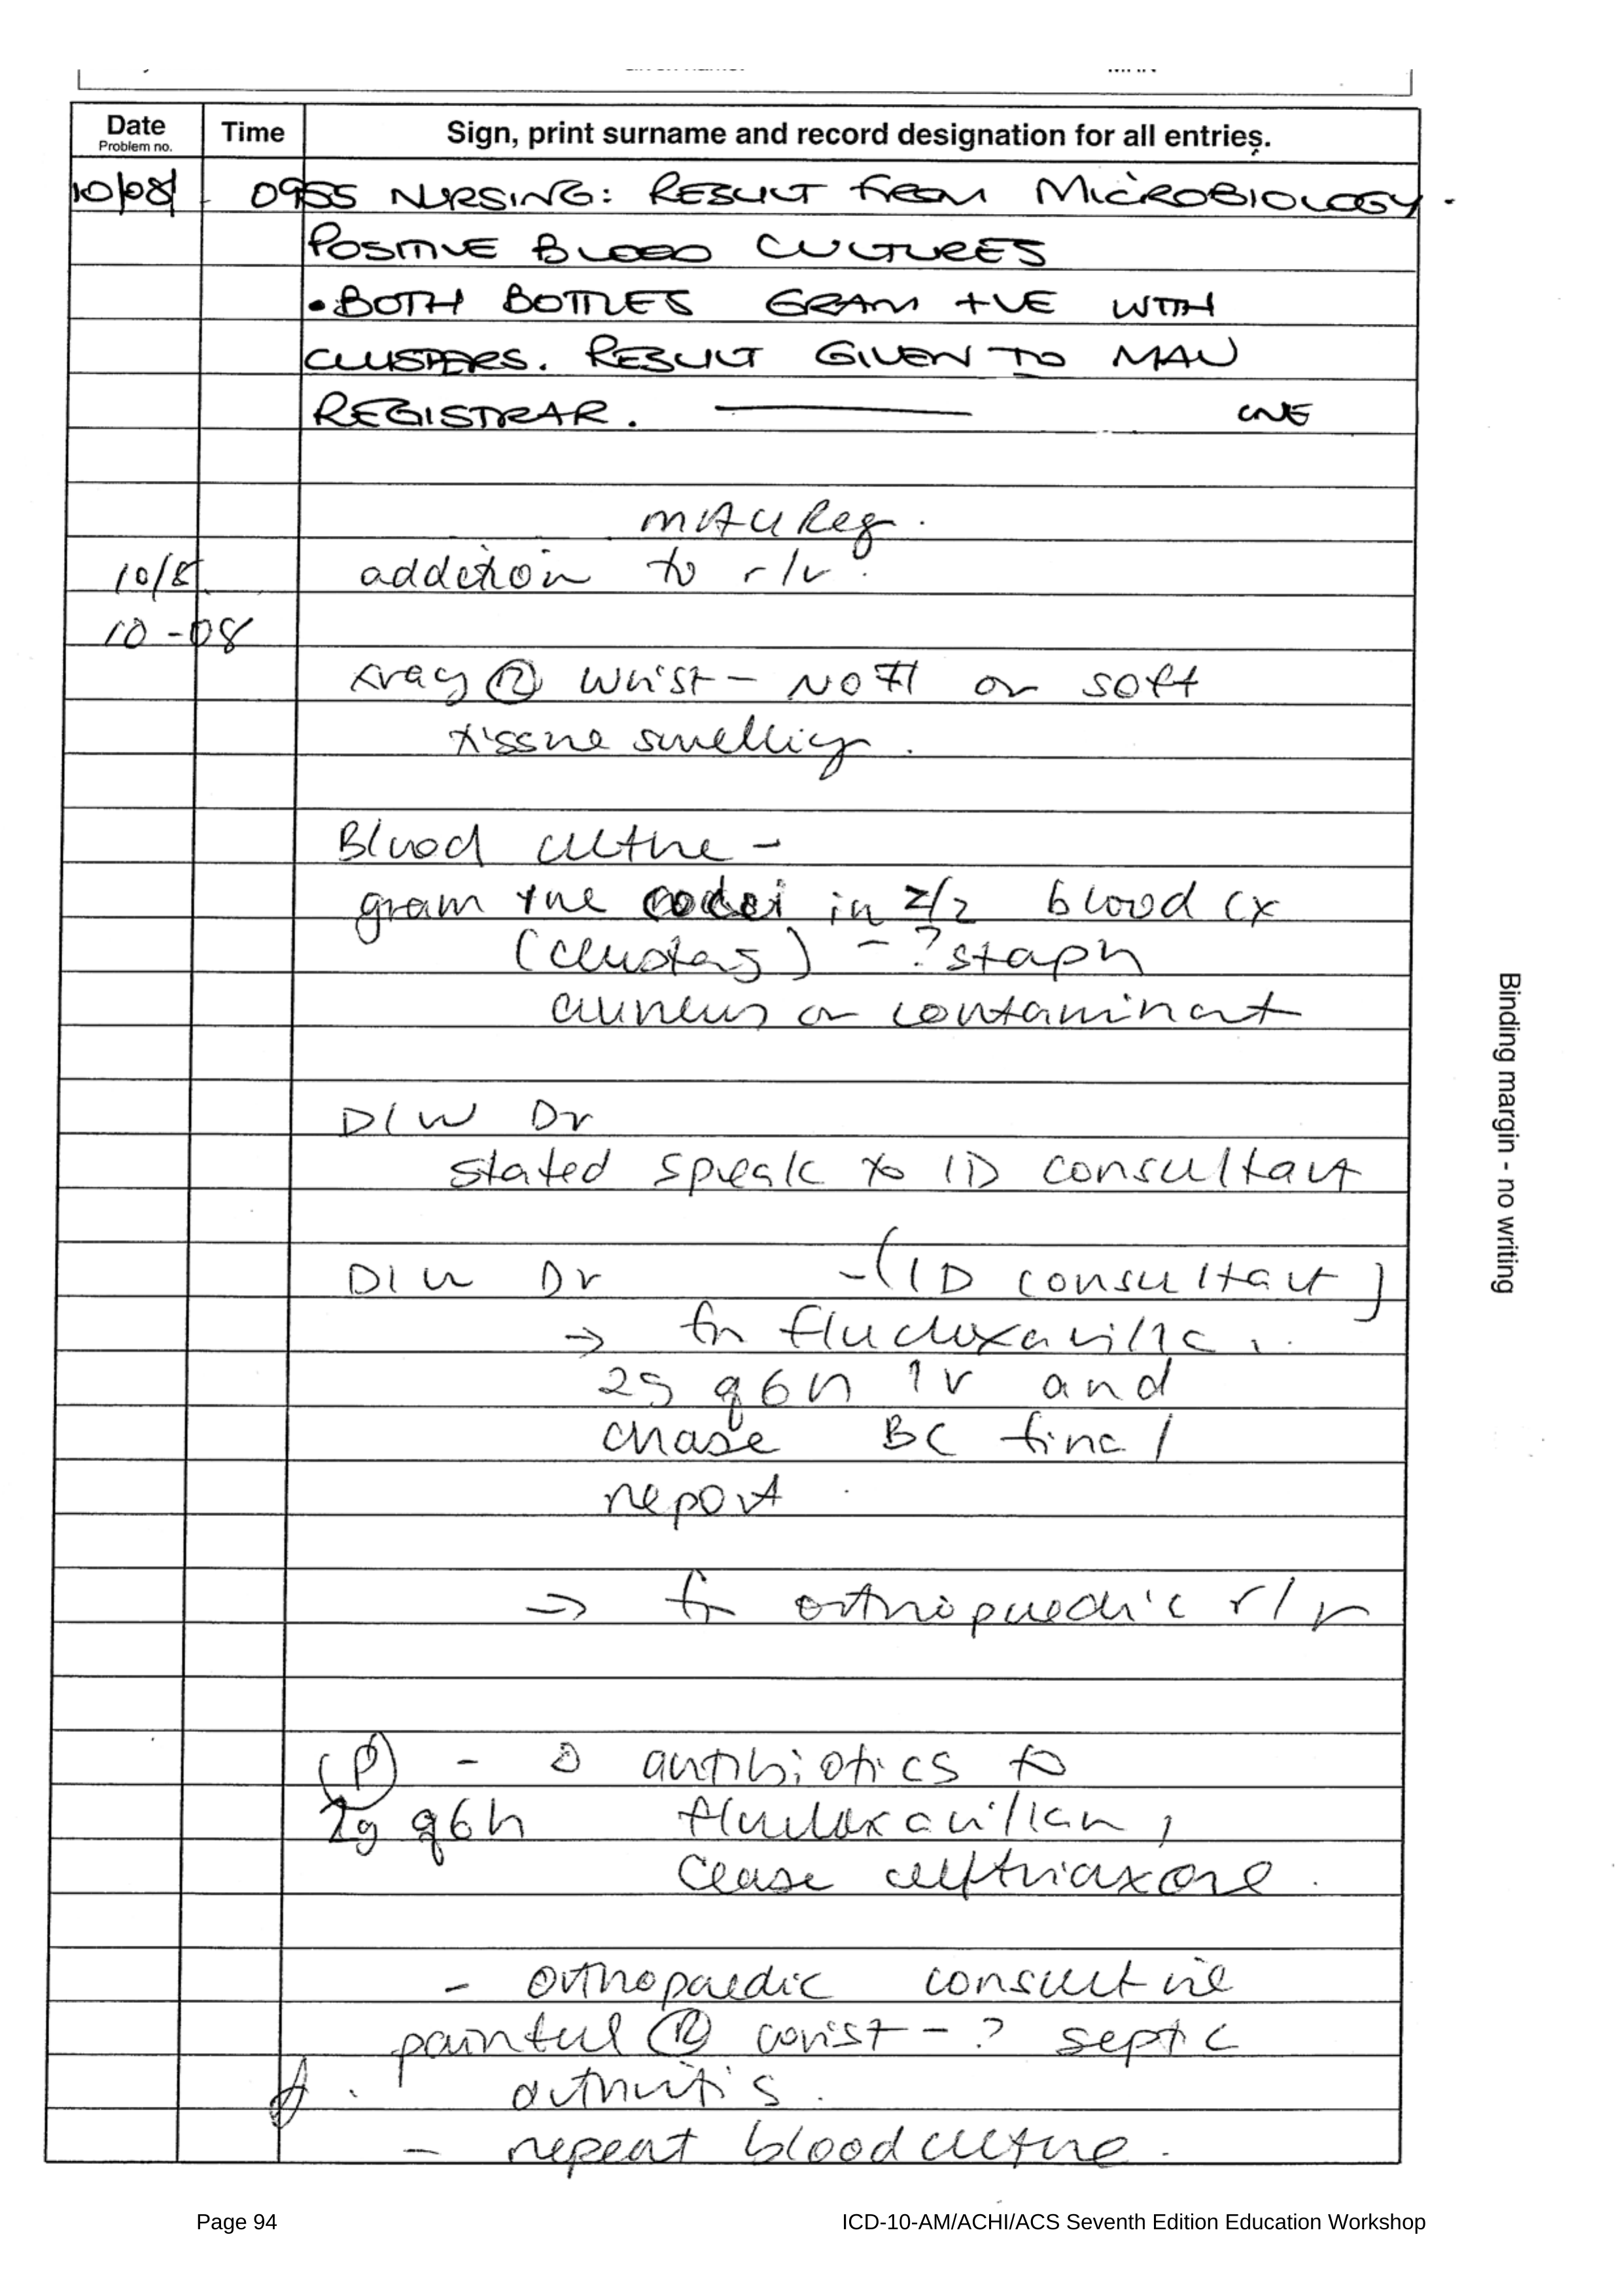 Date
Problem no.
Time
Sign, print surname and record designation for all entries.
10/08 0955 NURSING: RESULT FROM MICROBIOLOGY.
POSITIVE BLOOD CULTURES
• BOTH BOTTLES GRAM +VE WITH
CLUSTERS. RESULT GIVEN TO MAU
REGISTRAR. CNE
MAU Reg.
10/8 addition to r/v:
10-08
Xray Ⓡ wrist - NO # or soft
tissue swelling.
Blood culture -
gram +ve cocci in 2/2 blood cx
(clusters) - ? staph
aureus or contaminant
D/W Dr
stated speak to ID consultant
D/W Dr - (ID consultant)
→ for flucloxacillin
2g q6h IV and
chase BC final
report.
→ for orthopaedic r/v
Ⓟ - Δ antibiotics to
2g q6h flucloxacillin,
cease ceftriaxone.
- orthopaedic consult re
painful Ⓡ wrist - ? septic
arthritis.
- repeat blood culture.
Binding margin - no writing
Page 94
ICD-10-AM/ACHI/ACS Seventh Edition Education Workshop